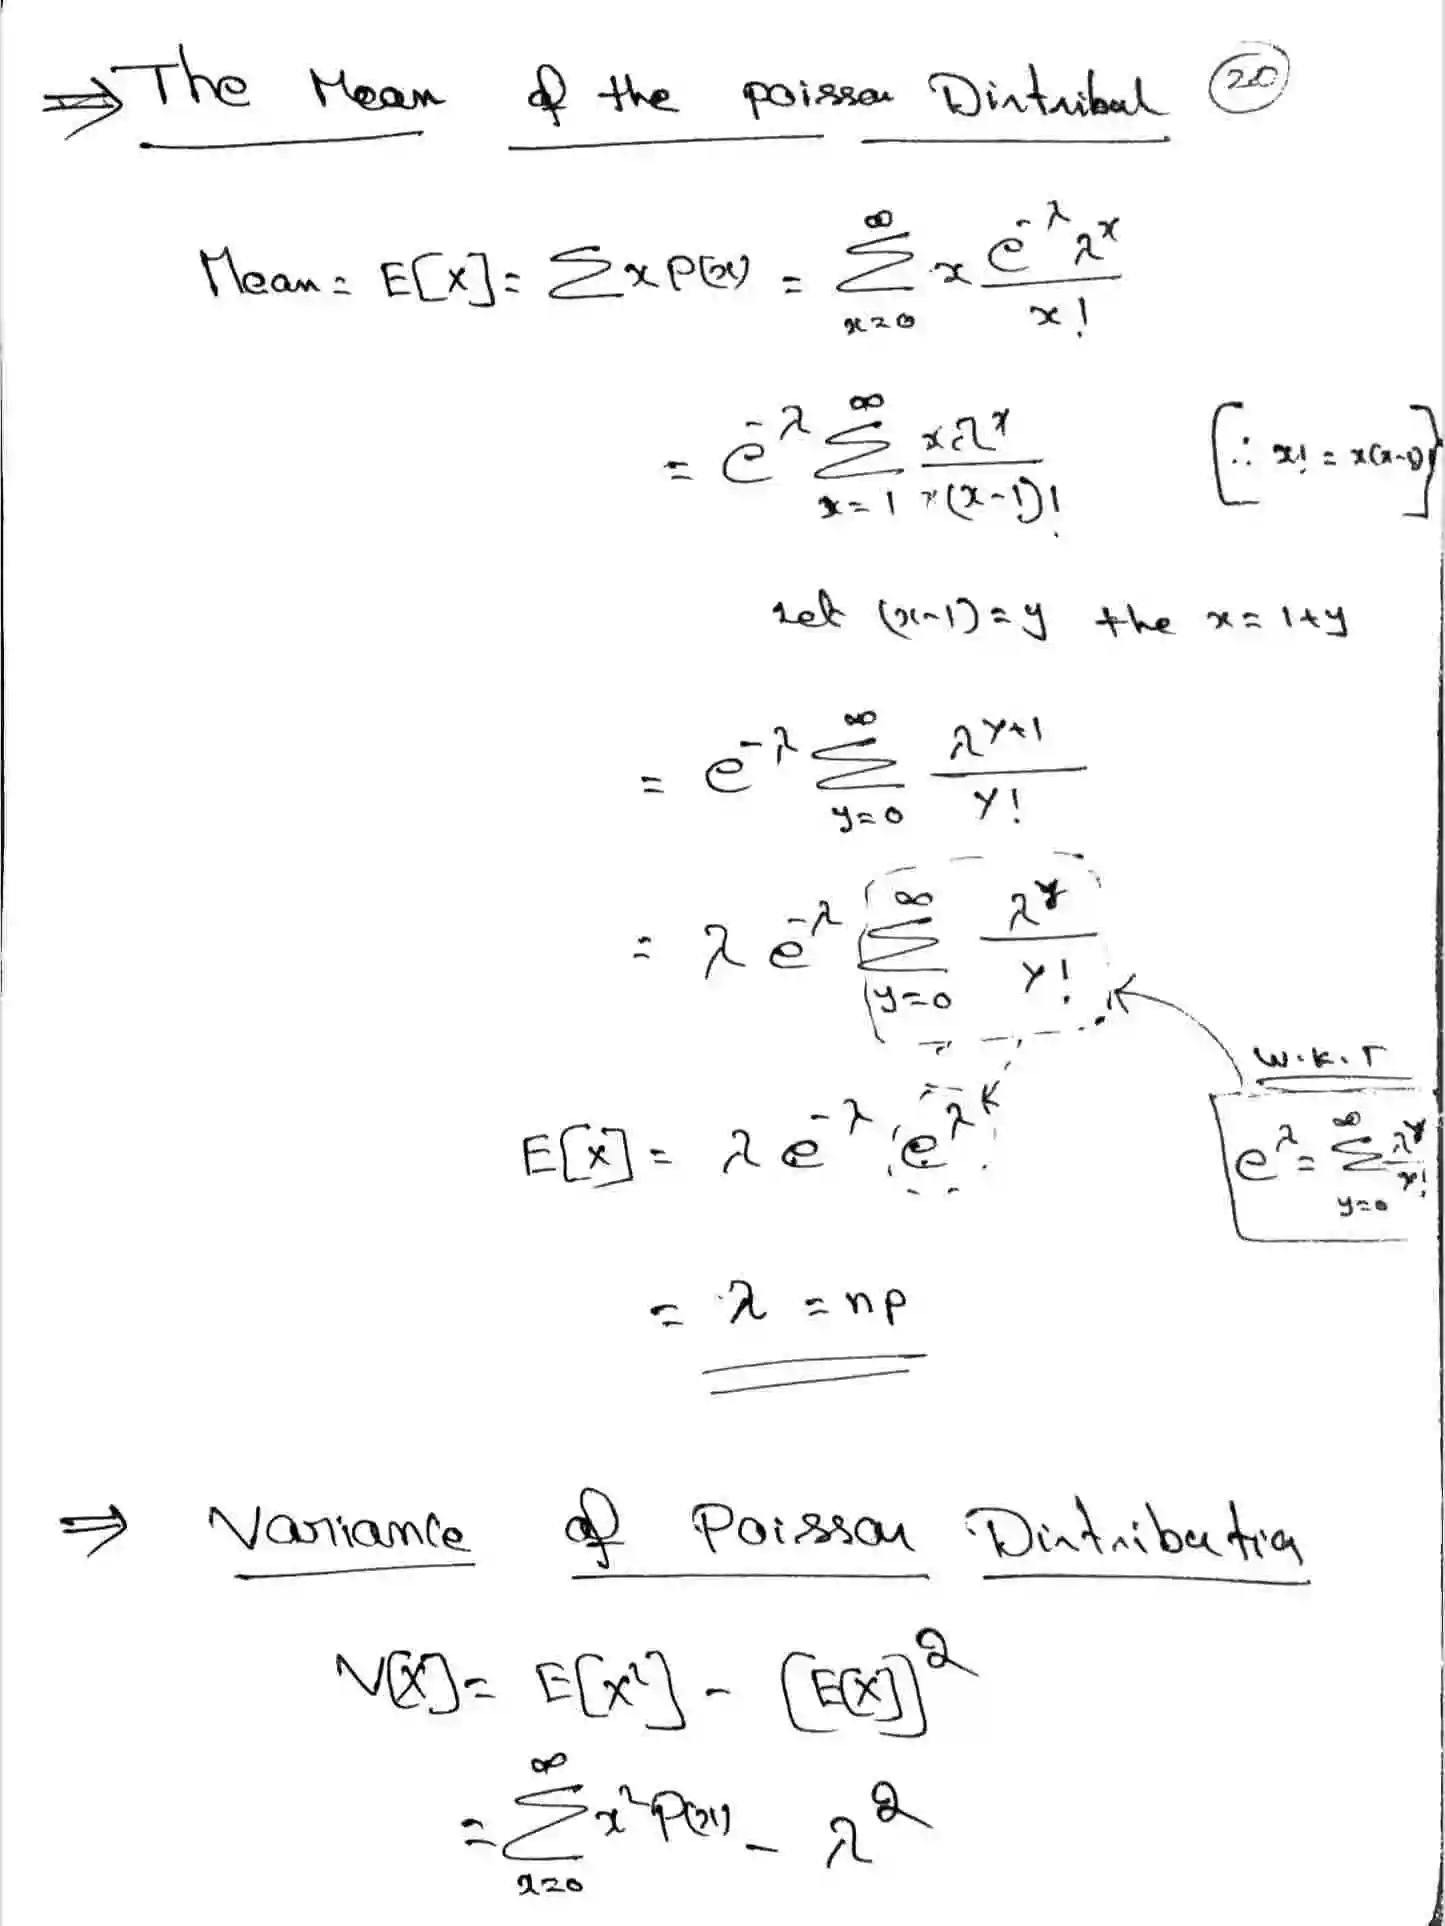 ⇒ The Mean of the poisson Distribut (20)
Mean = E[X] = Σ x P(x) = Σ_{x=0}^{∞} x e^{-λ} λ^x / x!
= e^{-λ} Σ_{x=1}^{∞} x λ^x / x(x-1)! [∴ x! = x(x-1)]
let (x-1) = y the x = 1+y
= e^{-λ} Σ_{y=0}^{∞} λ^{y+1} / y!
= λ e^{-λ} Σ_{y=0}^{∞} λ^y / y!
W.K.T
E[X] = λ e^{-λ} e^{λ} e^λ = Σ_{y=0}^{∞} λ^y / y!
= λ = np
⇒ Variance of Poisson Distribution
V[X] = E[X²] - [E[X]]²
= Σ_{x=0}^{∞} x² P(x) - λ²